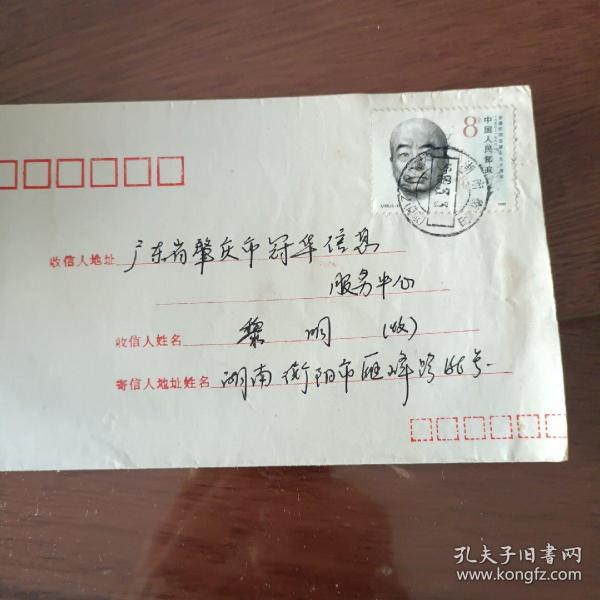 8分
中国人民邮政
收信人地址 广东省肇庆市冠华信息
服务中心
收信人姓名 黎明 (收)
寄信人地址姓名 湖南衡阳市雁峰路66号
孔夫子旧书网
www.kongfz.com